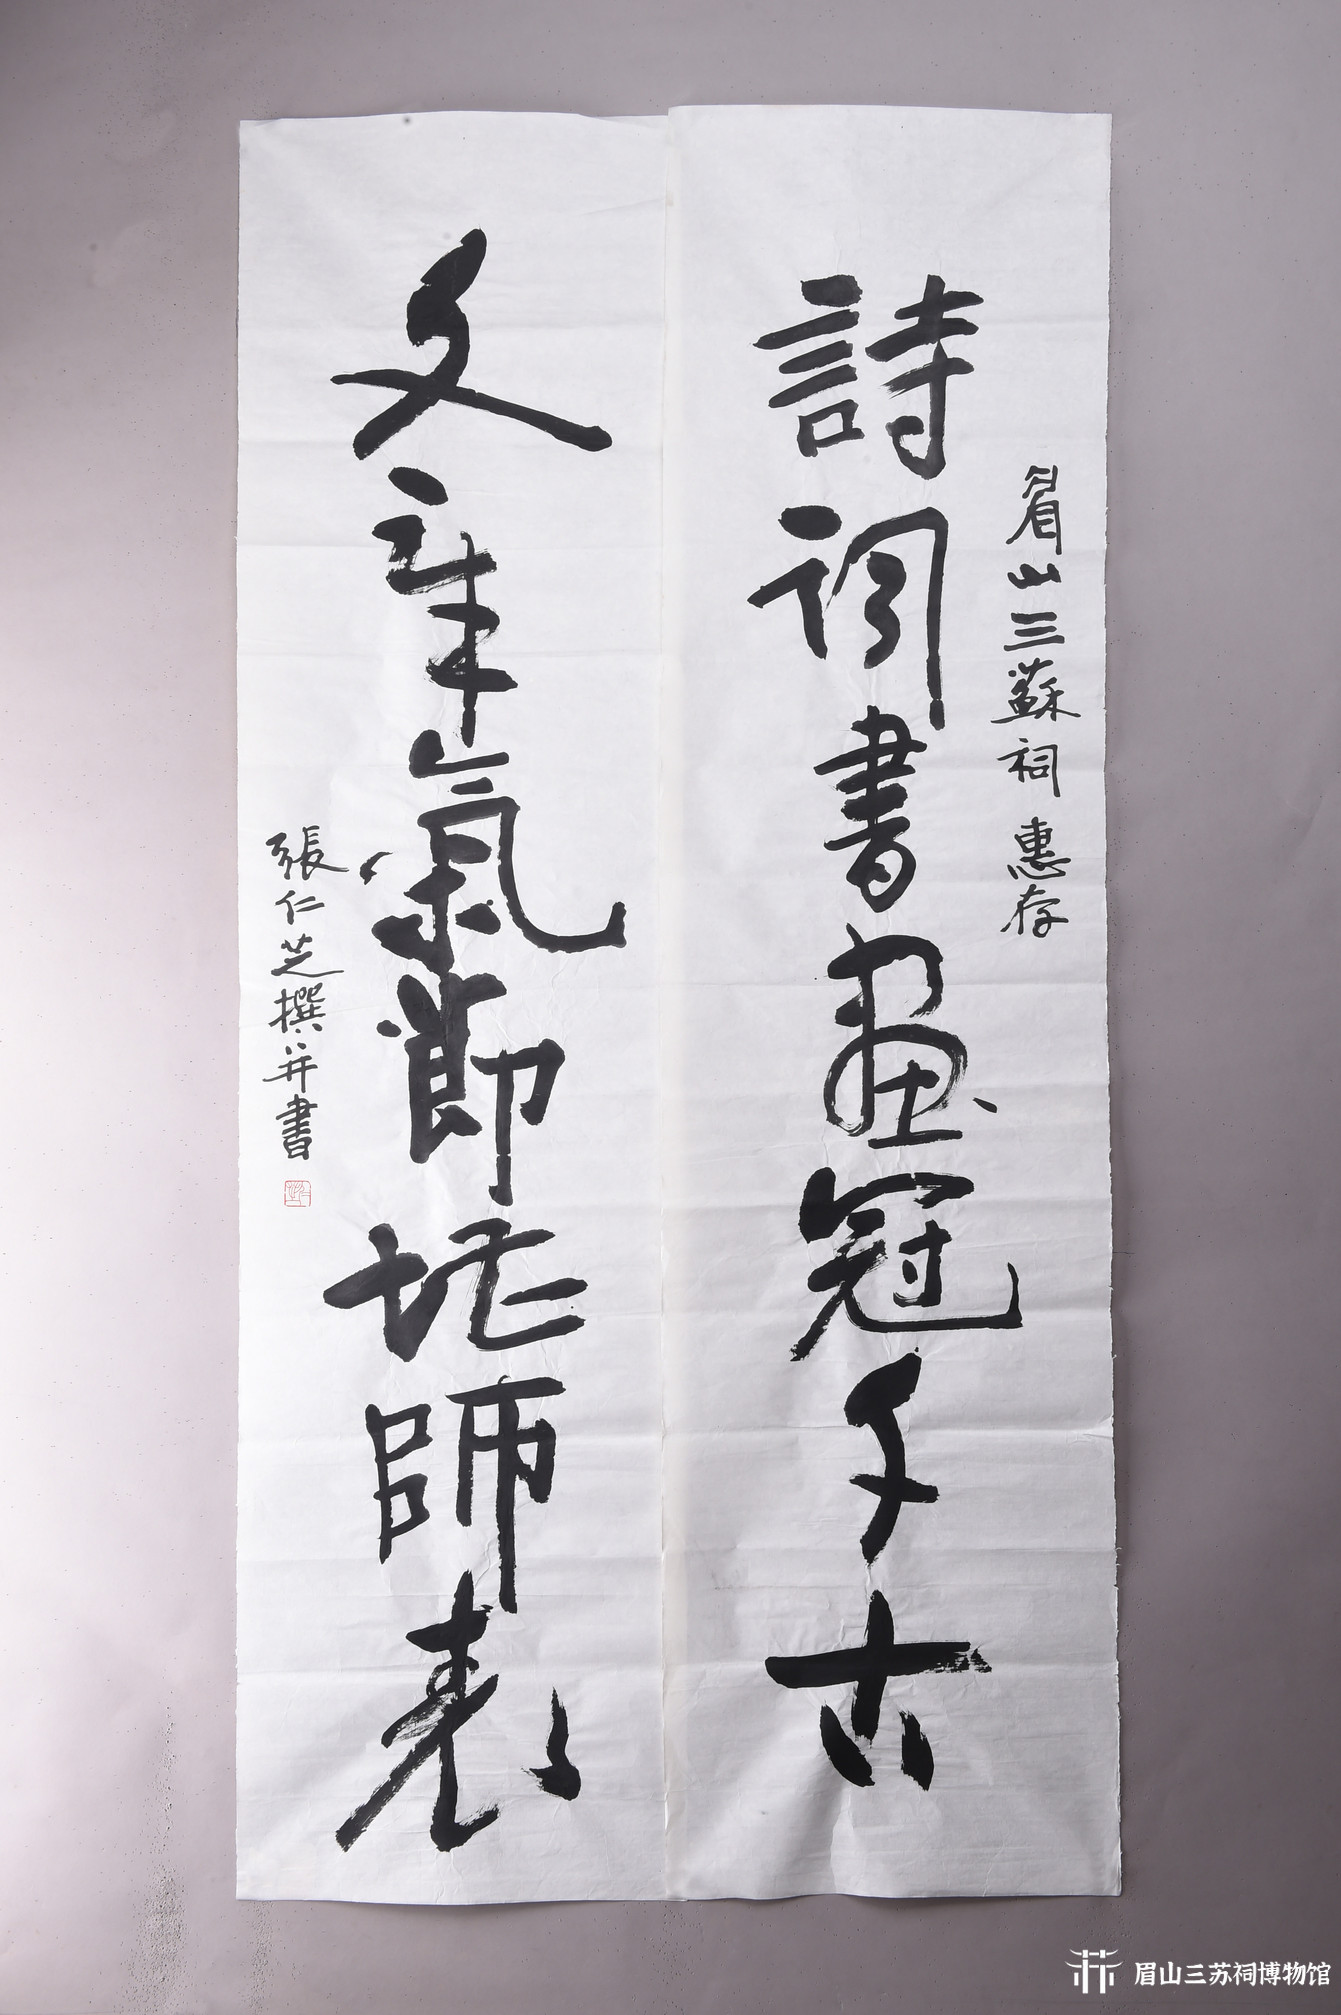 眉山三蘇祠 惠存
詩詞書畫冠千古
文章氣節垂師表
張仁芝撰并書
眉山三苏祠博物馆